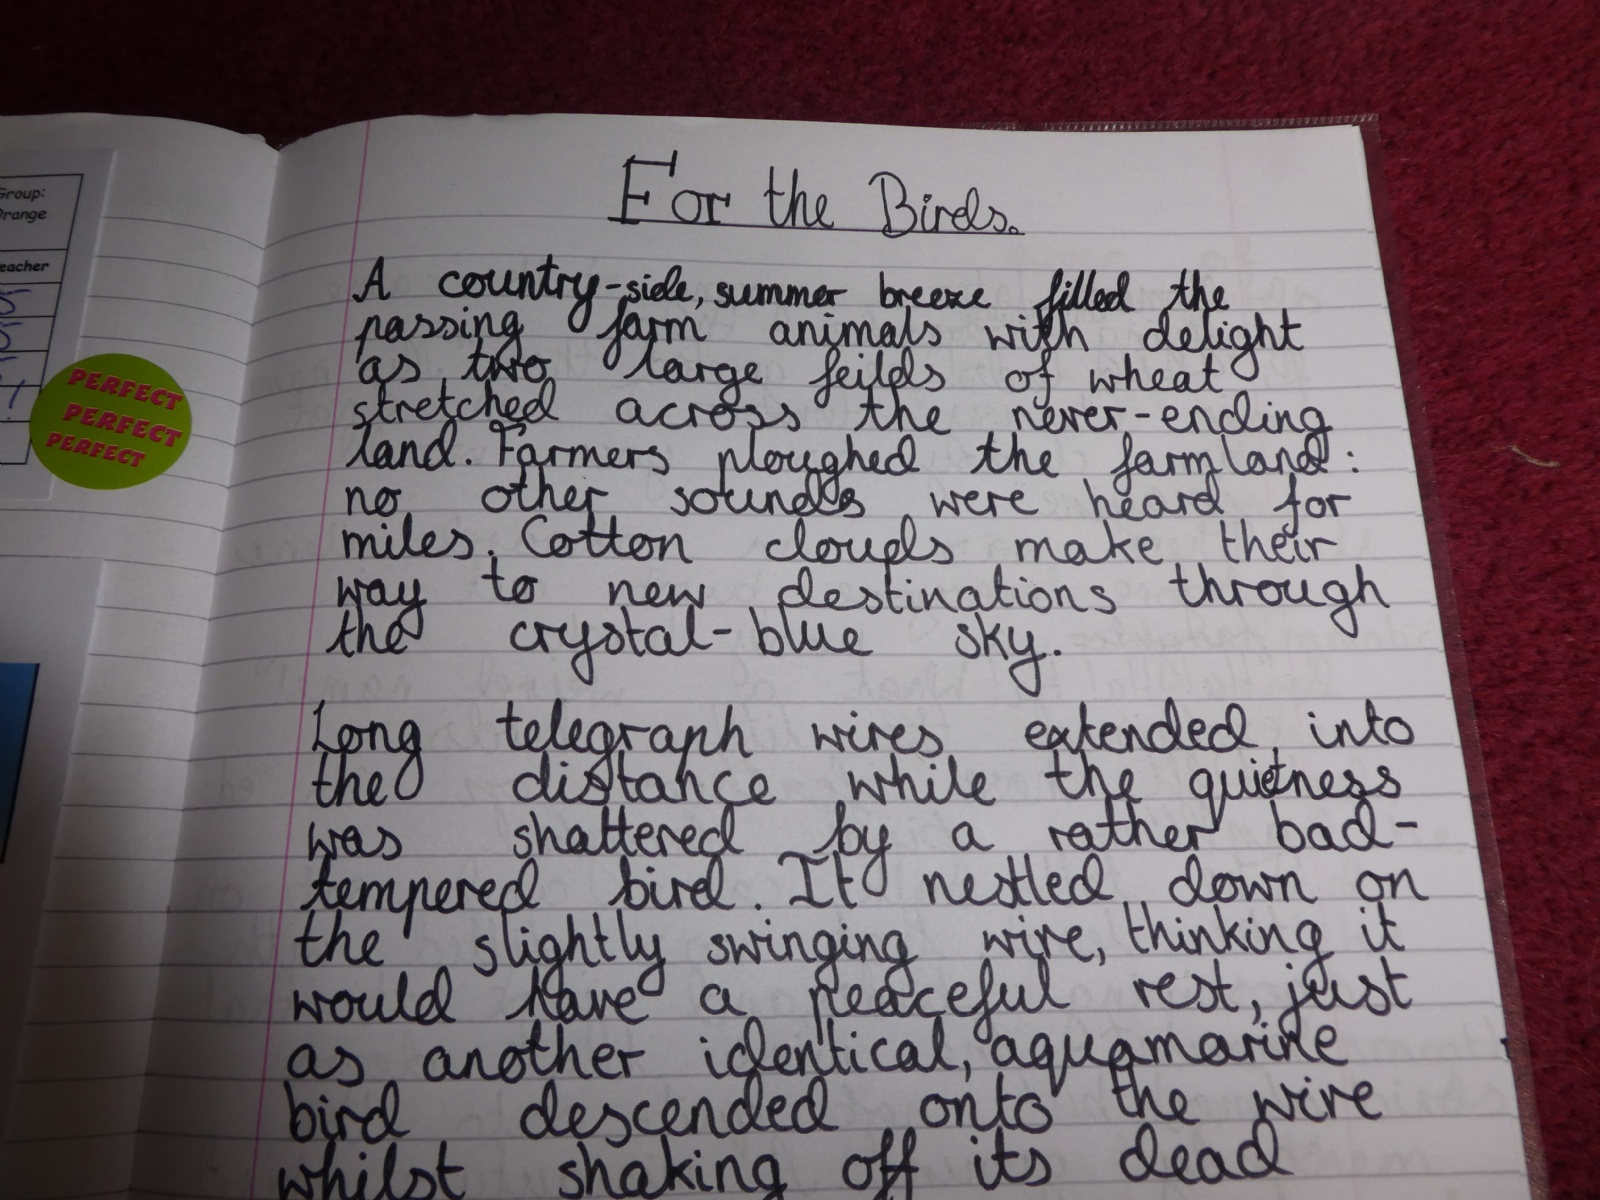 Group:
Orange
eacher
PERFECT
PERFECT
PERFECT
For the Birds.
A country-side, summer breeze filled the
passing farm animals with delight
as two large feilds of wheat
stretched across the never-ending
land. Farmers ploughed the farmland:
no other sounds were heard for
miles. Cotton clouds make their
way to new destinations through
the crystal-blue sky.
Long telegraph wires extended into
the distance while the quietness
was shattered by a rather bad-
tempered bird. It nestled down on
the slightly swinging wire, thinking it
would have a peaceful rest, just
as another identical, aquamarine
bird descended onto the wire
whilst shaking off its dead